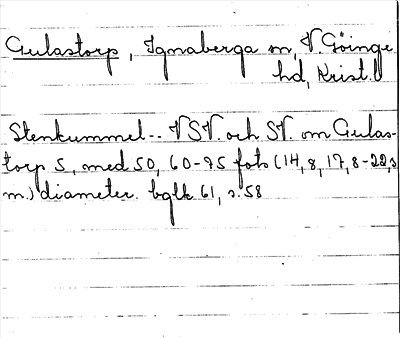 Gulastorp, Ignaberga sn, V. Göinge
hd, Krist. l
Stenkummel.. VSV. och SV. om Gulas-
torp S, med 50, 60-75 fots (14,8, 17,8-22,3
m.) diameter. bglk 61, s. 58